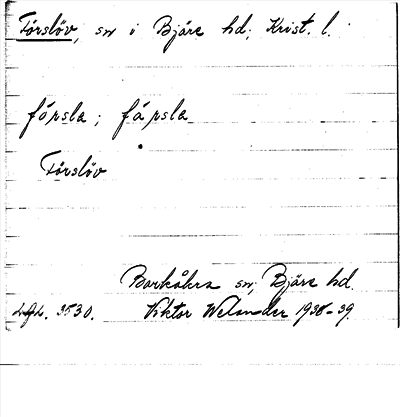 Förslöv, sn i Bjäre hd, Krist. l.
försla; fårsla
Förslöv
Barkåkra sn, Bjäre hd.
Lgl. 3530. Viktor Welander 1938-39.